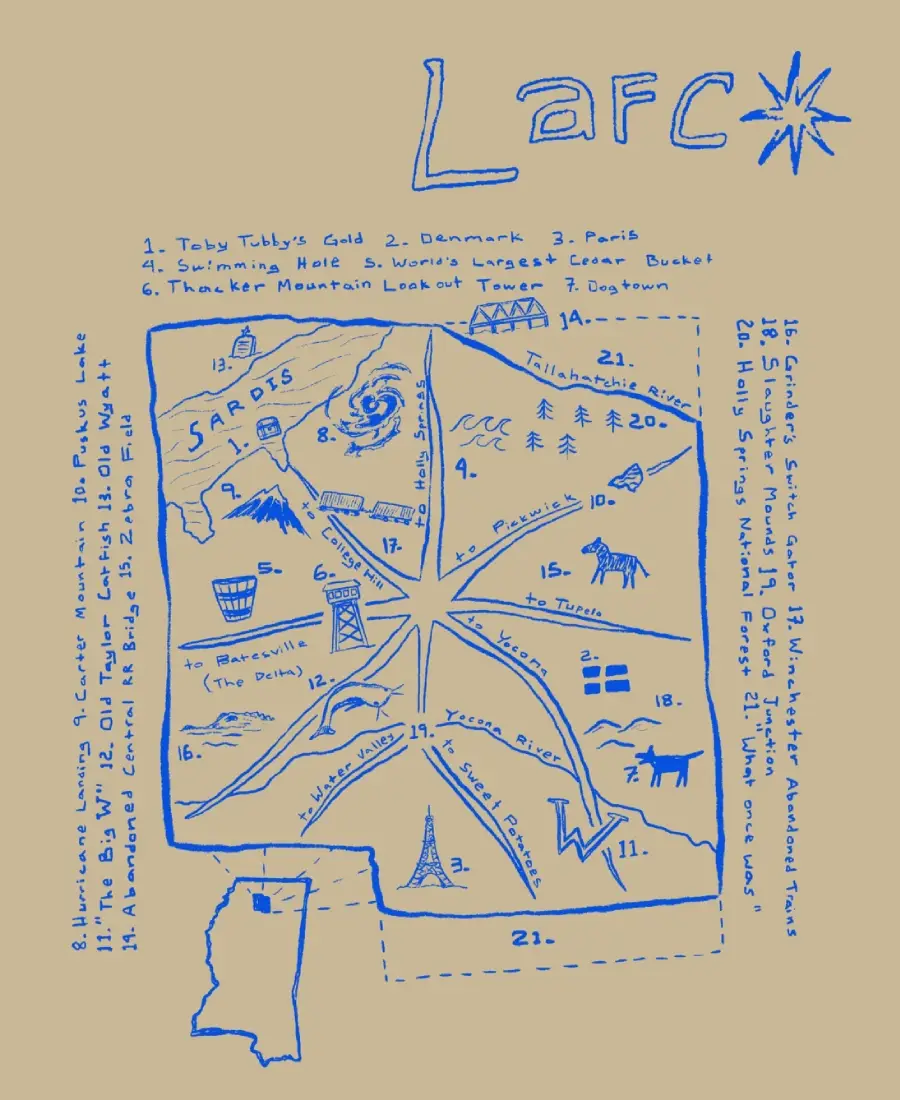 LaFC
1. Toby Tubby's Gold 2. Denmark 3. Paris
4. Swimming Hole 5. World's Largest Cedar Bucket
6. Thacker Mountain Lookout Tower 7. Dogtown
8. Hurricane Landing 9. Carter Mountain 10. Puskus Lake
11. "The Big W" 12. Old Taylor Catfish 13. Old Wyatt
14. Abandoned Central RR Bridge 15. Zebra Field
16. Grinder's Switch Gator 17. Winchester Abandoned Trains
18. Slaughter Mounds 19. Oxford Junction
20. Holly Springs National Forest 21. "What once was"
14.
13.
21.
Tallahatchie River
SARDIS
1.
8.
to Holly Springs
20.
4.
9.
10.
to Pickwick
to College Hill
17.
5.
6.
15.
to Tupelo
to Yocona
to Batesville
(The Delta)
2.
12.
18.
16.
19.
Yocona River
7.
to Water Valley
to Sweet Potatoes
W
11.
3.
21.